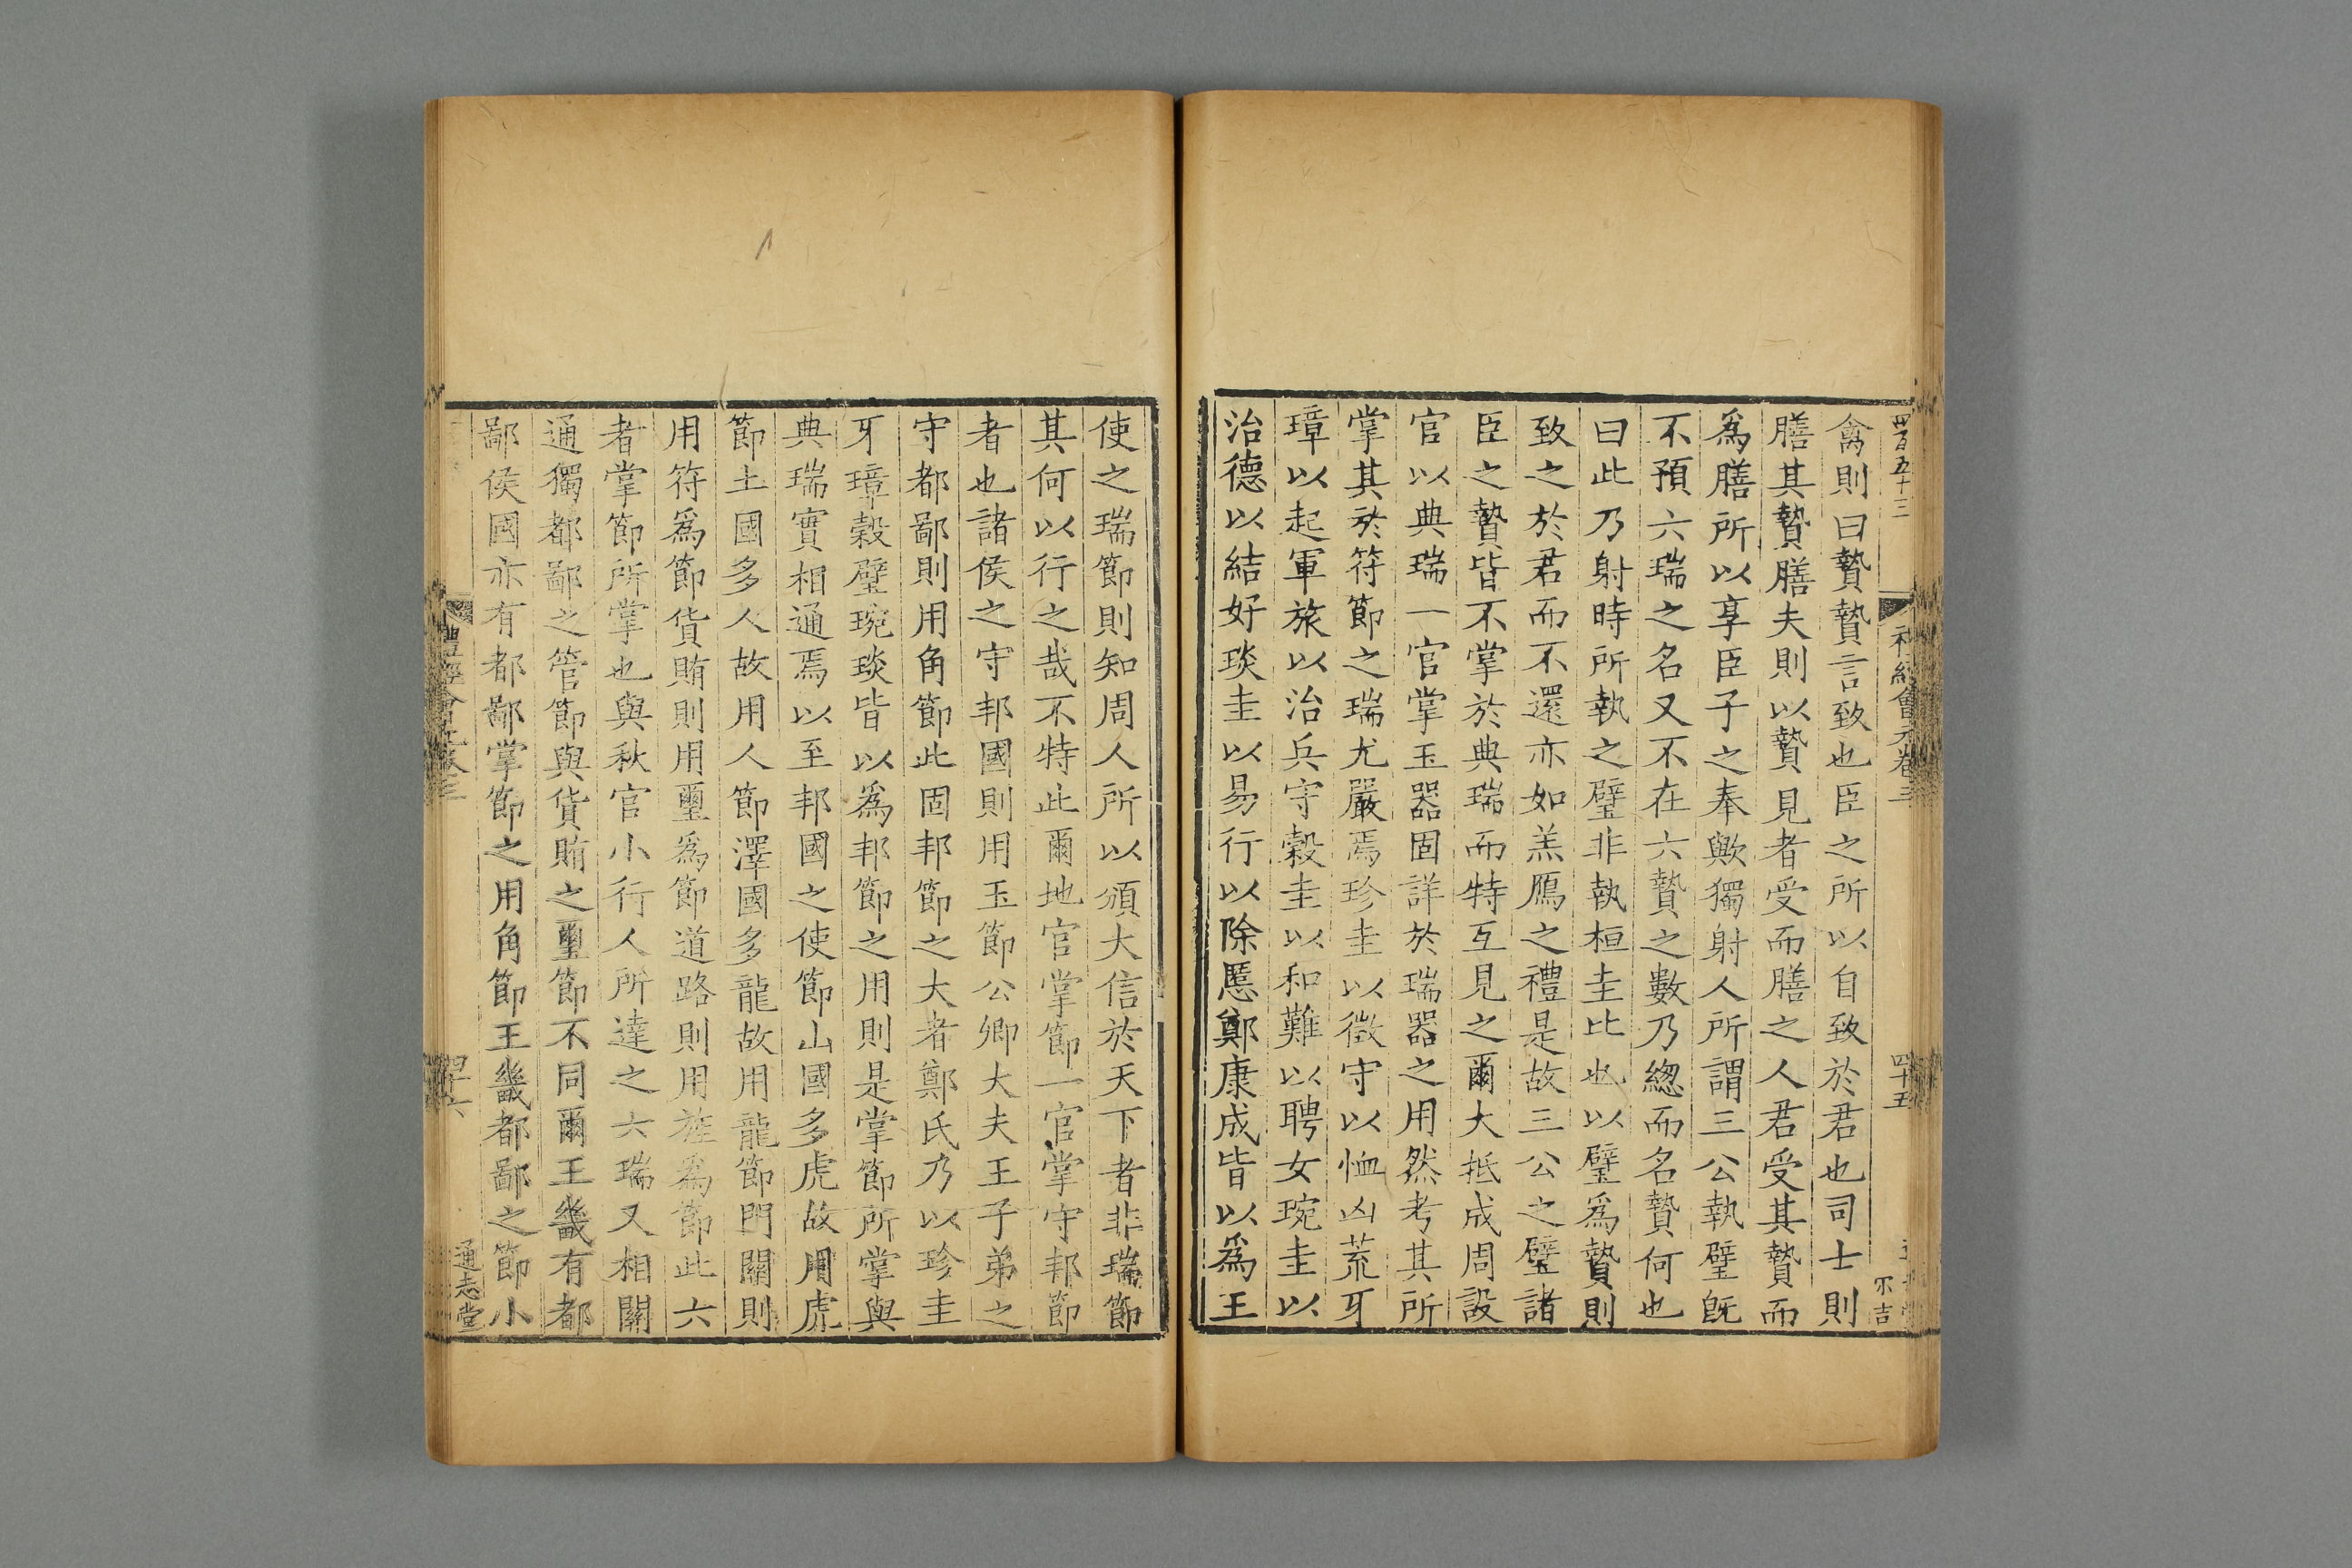 四百五十二
禮經會元卷三
四十五
不吉
禽則曰贄贄言致也臣之所以自致於君也司士則
膳其贄膳夫則以贄見者受而膳之人君受其贄而
爲膳所以享臣子之奉歟獨射人所謂三公執璧旣
不預六瑞之名又不在六贄之數乃緫而名贄何也
曰此乃射時所執之璧非執桓圭比也以璧爲贄則
致之於君而不還亦如羔鴈之禮是故三公之璧諸
臣之贄皆不掌於典瑞而特互見之爾大抵成周設
官以典瑞一官掌玉器固詳於瑞器之用然考其所
掌其於符節之瑞尤嚴焉珍圭以徵守以恤凶荒牙
璋以起軍旅以治兵守穀圭以和難以聘女琬圭以
治德以結好琰圭以易行以除慝鄭康成皆以爲王
使之瑞節則知周人所以頒大信於天下者非瑞節
其何以行之哉不特此爾地官掌節一官掌守邦節
者也諸侯之守邦國則用玉節公卿大夫王子弟之
守都鄙則用角節此固邦節之大者鄭氏乃以珍圭
牙璋穀璧琬琰皆以爲邦節之用則是掌節所掌與
典瑞實相通焉以至邦國之使節山國多虎故用虎
節土國多人故用人節澤國多龍故用龍節門關則
用符爲節貨賄則用璽爲節道路則用旌爲節此六
者掌節所掌也與秋官小行人所達之六瑞又相關
通獨都鄙之管節與貨賄之璽節不同爾王畿有都
鄙侯國亦有都鄙掌節之用角節王畿都鄙之節小
禮經會元卷三
四十六
通志堂